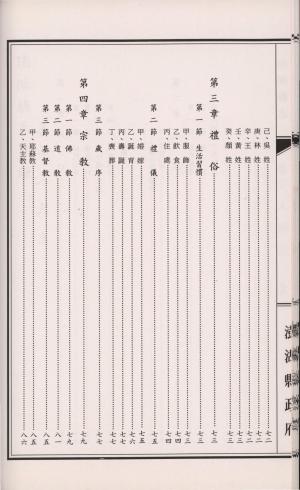 己、吳 姓……七二
庚、林 姓……七二
辛、王 姓……七二
壬、黃 姓……七三
癸、顏 姓……七三
第三章 禮 俗……七三
第一節 生活習慣……七三
甲、服 飾……七三
乙、飲 食……七四
丙、住 處……七四
第二節 禮 儀……七五
甲、婚 嫁……七五
乙、誕 育……七六
丙、壽 誕……七七
丁、喪 葬……七七
第三節 歲 序……七七
第四章 宗 教……七九
第一節 佛 教……七九
第二節 道 教……八一
第三節 基督教……八五
甲、耶穌教……八五
乙、天主教……八六
澎湖縣政府